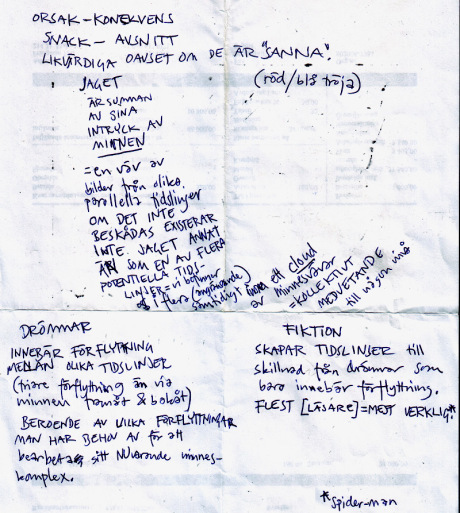 ORSAK – KONEKVENS
SNACK – AVSNITT
LIKVÄRDIGA OAVSET OM DE ÄR "SANNA".
(röd/blå tröja)
JAGET
ÄR SUMMAN
AV SINA
INTRYCK AV
MINNEN
= en väv av
bilder från olika
parallella tidslinjer
OM DET INTE
BESKÅDAS EXISTERAR
INTE JAGET ANNAT
ÄN SOM EN AV FLERA
POTENTIELLA TIDS-
LINJER = vi befinner
i flera (angränsande)
samtidigt inom ett cloud
av minnesvävar
= KOLLEKTIVT
MEDVETANDE
till någon mån
DRÖMMAR
INNEBÄR FÖRFLYTTNING
MELLAN OLIKA TIDSLINJER
(friare förflyttning än via
minnen framåt & bakåt)
BEROENDE AV VILKA FÖRFLYTTNINGAR
MAN HAR BEHOV AV för att
bearbeta sitt NUvarande minnes-
komplex.
FIKTION
SKAPAR TIDSLINJER till
skillnad från drömmar som
bara innebär förflyttning.
FLEST [LÄSARE] = MEST VERKLIG.*
*Spider-man